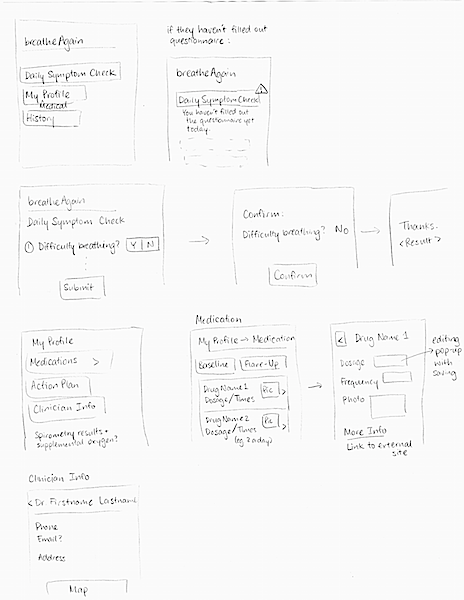 breatheAgain
Daily Symptom Check
My Profile
Medical
History
if they haven't filled out
questionnaire:
breatheAgain
!
Daily Symptom Check
You haven't filled out
the questionnaire yet
today.
breatheAgain
Daily Symptom Check
① Difficulty breathing? Y | N
Submit
Confirm:
Difficulty breathing? No
Confirm
Thanks.
<Result>
My Profile
Medications >
Action Plan
Clinician Info
Spirometry results +
supplemental oxygen?
Medication
My Profile → Medication
Baseline Flare-Up
Drug Name 1 Pic >
Dosage/Times
Drug Name 2 Pic >
Dosage/Times
(eg. 2 a day)
< Drug Name 1
Dosage
Frequency
Photo
More Info
Link to external
site
editing
pop-up
with
saving
Clinician Info
< Dr. Firstname Lastname
Phone
Email?
Address
Map